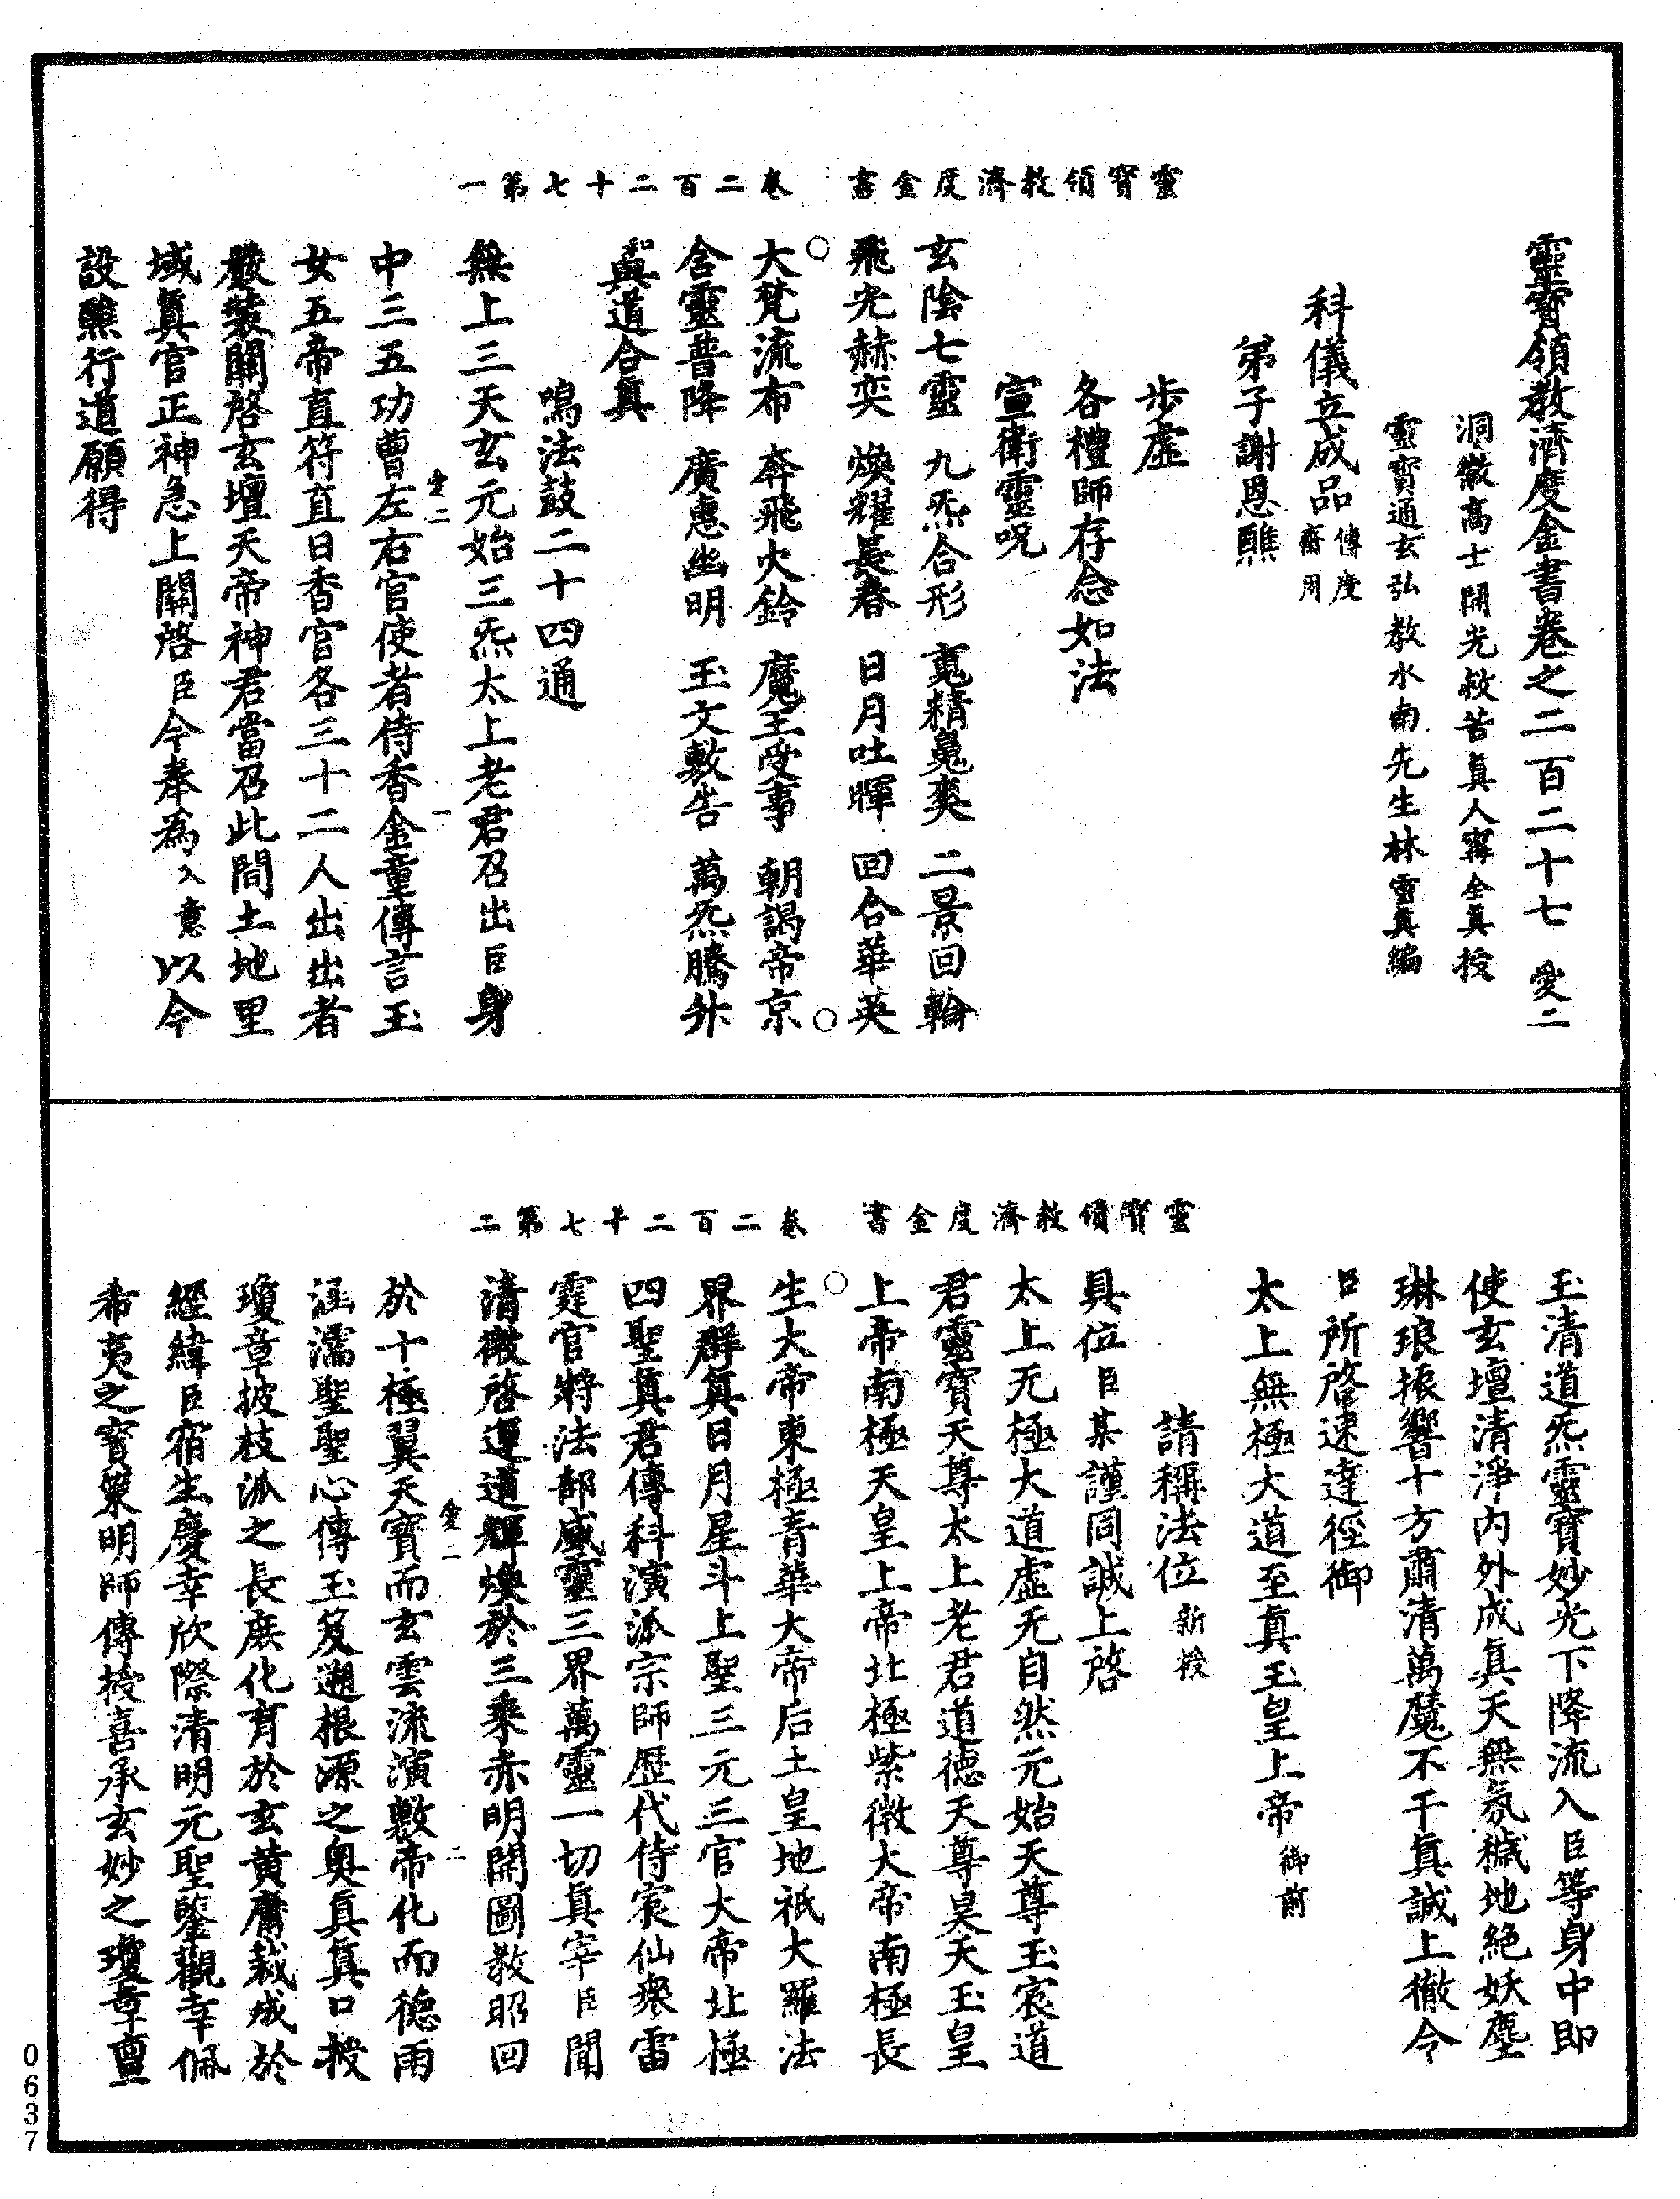 靈寶領教濟度金書　卷二百二十七第一
靈寶領教濟度金書卷之二百二十七　愛二
洞微高士開光救苦眞人寗全眞授
靈寶通玄弘教水南先生林靈眞編
科儀立成品傳度齋用
弟子謝恩醮
步虛
各禮師存念如法
宣衛靈呪
玄陰七靈　九炁合形　䰟精㒵爽　二景回輪
飛光赫奕　煥耀長春　日月吐暉　回合華英
○大梵流布　奔飛火鈴　魔王受事　朝謁帝京○
含靈普降　廣惠幽明　玉文敷告　萬炁騰升
與道合眞
鳴法鼓二十四通
無上三天玄元始三炁太上老君召出臣身
愛二　一
中三五功曹左右官使者侍香金童傳言玉
女五帝直符直日香官各三十二人出出者
嚴裝關啓玄壇天帝神君當召此間土地里
域眞官正神急上關啓臣今奉爲入意以今
設醮行道願得
靈寶領教濟度金書　卷二百二十七第二
玉清道炁靈寶妙光下降流入臣等身中即
使玄壇清淨內外成眞天無氛穢地絕妖塵
琳琅振響十方肅清萬魔不干眞誠上徹令
臣所啓速達徑御
太上無極大道至眞玉皇上帝御前
請稱法位新授
具位臣某謹同誠上啓
太上无極大道虛无自然元始天尊玉宸道
君靈寶天尊太上老君道德天尊昊天玉皇
上帝南極天皇上帝北極紫微大帝南極長
○生大帝東極青華大帝后土皇地祇大羅法
界群眞日月星斗上聖三元三官大帝北極
四聖眞君傳科演泒宗師歷代侍宸仙衆雷
霆官將法部威靈三界萬靈一切眞宰臣聞
清微啓運遹輝煥於三乘赤明開圖敎昭回
愛一　二
於十極翼天寶而玄雲流演敷帝化而德雨
涵濡聖聖心傳玉笈遡根源之奧眞眞口授
瓊章披枝泒之長庶化育於玄黄庸裁成於
經緯臣宿生慶幸欣際清明元聖鑒觀幸佩
希夷之寳篆明師傳授喜承玄妙之瓊章亶
0637